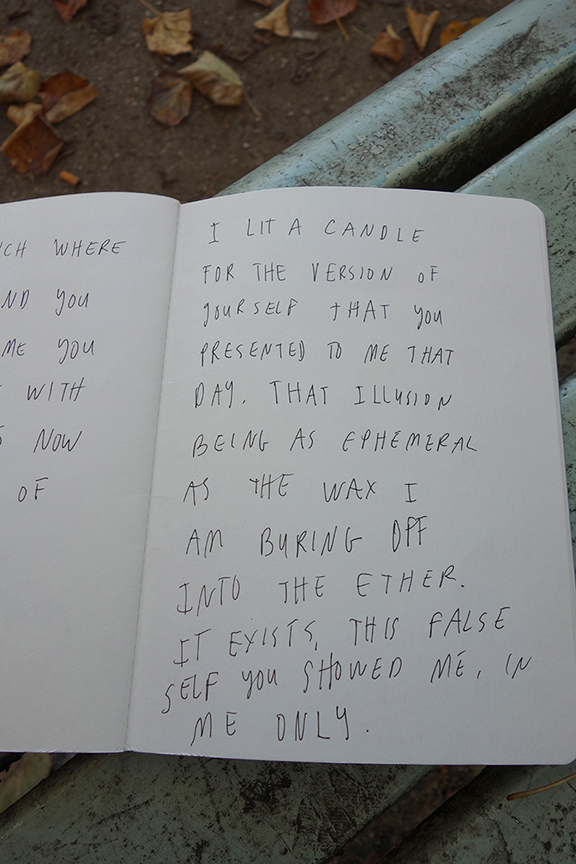 WHERE
YOU
ME YOU
WITH
NOW
OF
I LIT A CANDLE
FOR THE VERSION OF
YOURSELF THAT YOU
PRESENTED TO ME THAT
DAY. THAT ILLUSION
BEING AS EPHEMERAL
AS THE WAX I
AM BURING OFF
INTO THE ETHER.
IT EXISTS, THIS FALSE
SELF YOU SHOWED ME, IN
ME ONLY.